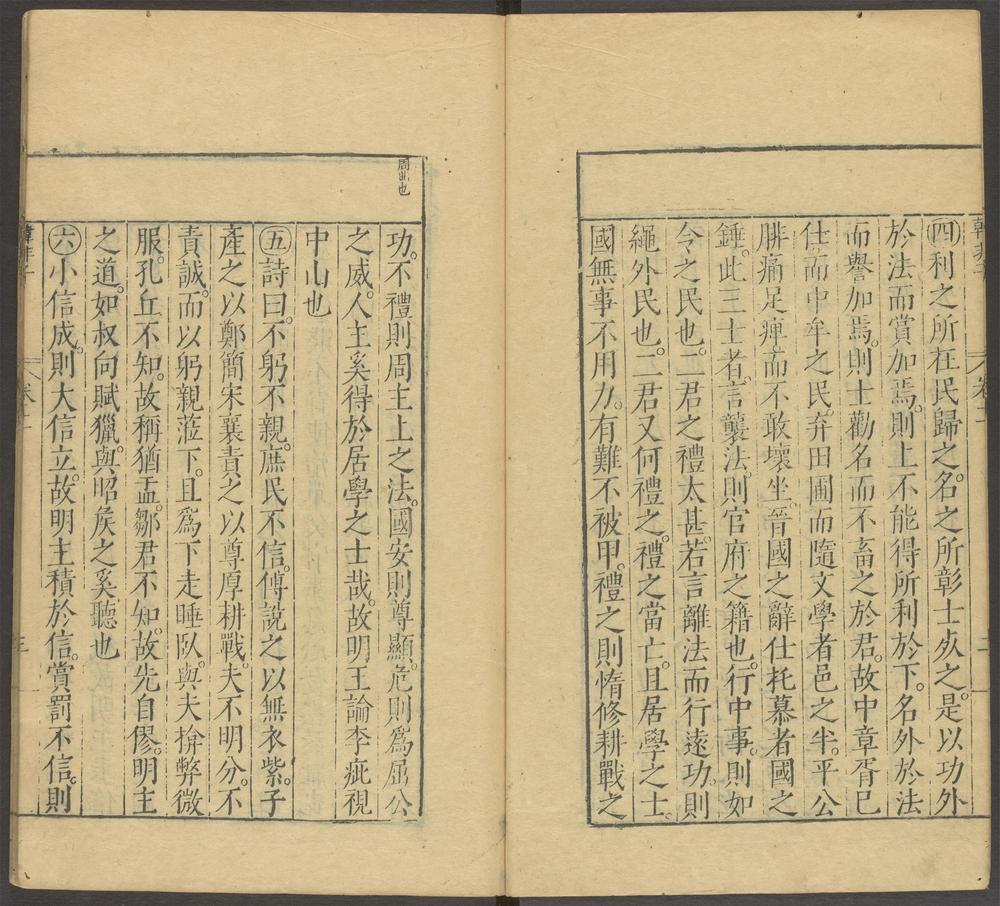 韓非子
卷十一
二
㊃利之所在民歸之。名之所彰士死之。是以功外
於法而賞加焉。則上不能得所利於下。名外於法
而譽加焉。則士勸名而不畜之於君。故中章胥已
仕而中牟之民。弃田圃而隨文學者邑之半。平公
腓痛足痺而不敢壞坐。晉國之辭仕托慕者國之
錘。此三士者。言襲法。則官府之籍也。行中事。則如
令之民也。二君之禮太甚。若言離法而行遠功。則
繩外民也。二君又何禮之。禮之當亡。且居學之士。
國無事不用力。有難不被甲。禮之則惰修耕戰之
功。不禮則周主上之法。國安則尊顯。危則爲屈公
之威。人主奚得於居學之士哉。故明王論李疵視
中山也
㊄詩曰。不躬不親。庶民不信。傅說之以無衣紫。子
產之以鄭簡宋襄責之以尊厚耕戰。夫不明分。不
責誠。而以躬親蒞下。且爲下走睡臥。與夫揜弊微
服。孔丘不知。故稱猶盂。鄒君不知。故先自僇。明主
之道。如叔向賦獵。與昭矦之奚聽也
㊅小信成。則大信立。故明主積於信。賞罰不信。則
周
也
韓非子
卷十一
三